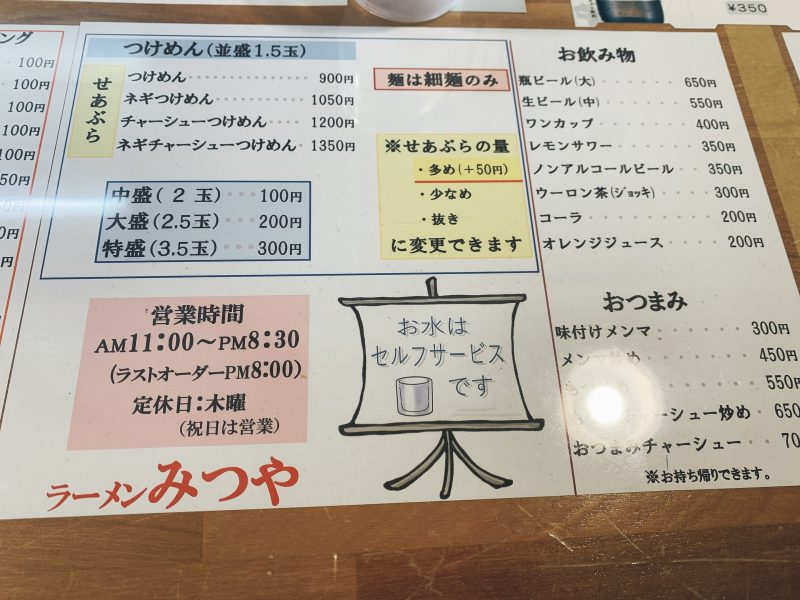 ング
100円
100円
100円
100円
100円
つけめん(並盛1.5玉)
せあぶら
つけめん 900円
ネギつけめん 1050円
チャーシューつけめん 1200円
ネギチャーシューつけめん 1350円
中盛(2 玉) 100円
大盛(2.5玉) 200円
特盛(3.5玉) 300円
麺は細麺のみ
※せあぶらの量
・多め(+50円)
・少なめ
・抜き
に変更できます
営業時間
AM11:00〜PM8:30
(ラストオーダーPM8:00)
定休日:木曜
(祝日は営業)
ラーメンみつや
お水は
セルフサービス
です
¥350
お飲み物
瓶ビール(大) 650円
生ビール(中) 550円
ワンカップ 400円
レモンサワー 350円
ノンアルコールビール 350円
ウーロン茶(ジョッキ) 300円
コーラ 200円
オレンジジュース 200円
おつまみ
味付けメンマ 300円
メンマ炒め 450円
550円
チャーシュー炒め 650
おつまみチャーシュー 70
※お持ち帰りできます。